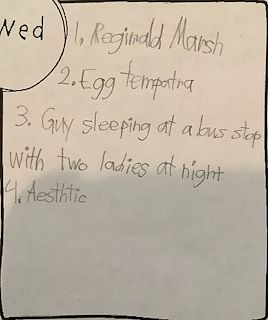 Wed
1. Reginald Marsh
2. Egg tempatra
3. Guy sleeping at a bus stop
with two ladies at night
4. Aesthtic